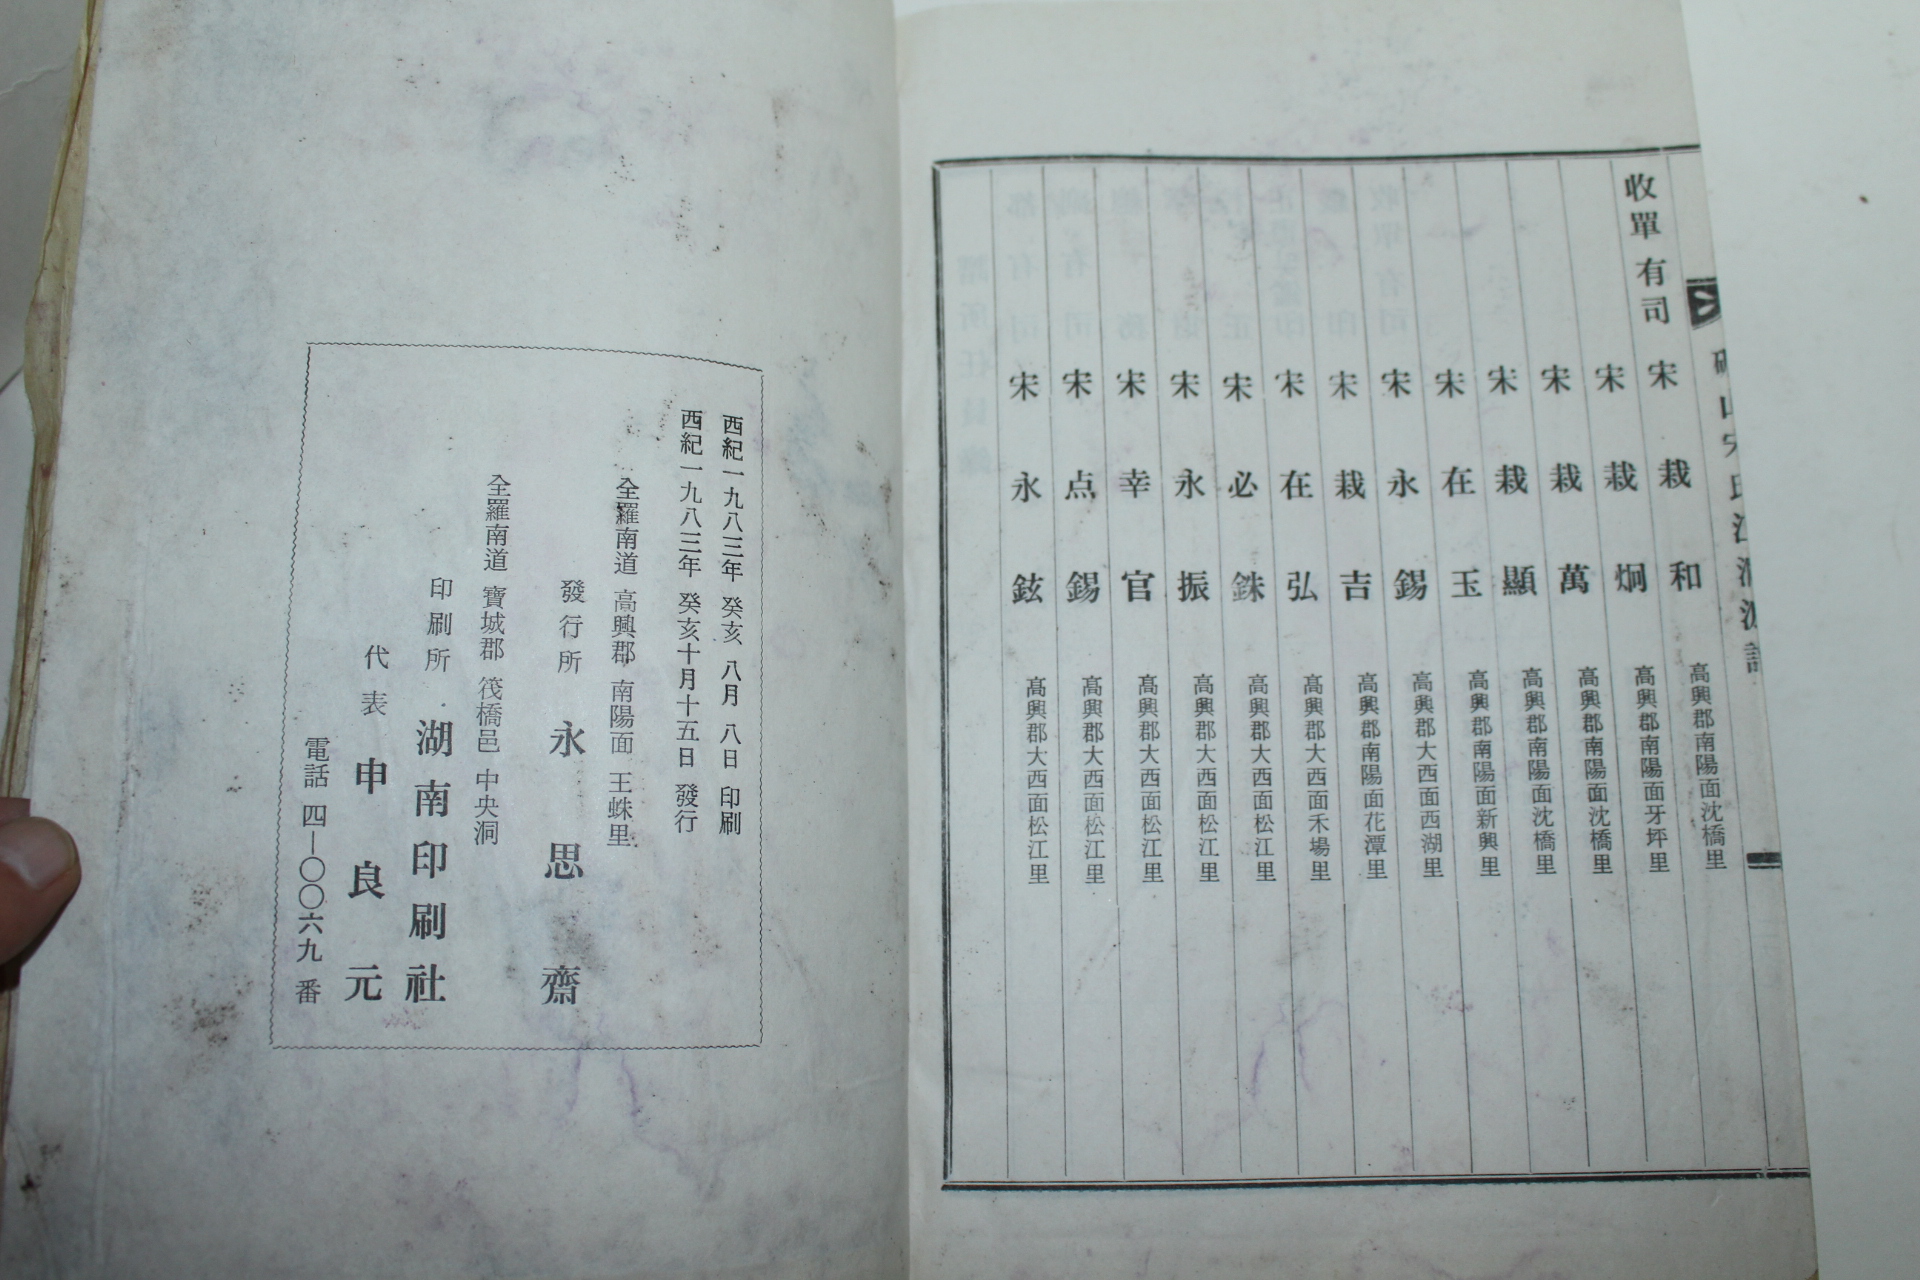 收單有司
宋栽和 高興郡南陽面沈橋里
宋栽炯 高興郡南陽面牙坪里
宋栽萬 高興郡南陽面沈橋里
宋栽顯 高興郡南陽面沈橋里
宋在玉 高興郡南陽面新興里
宋永錫 高興郡大西面西湖里
宋栽吉 高興郡南陽面花潭里
宋在弘 高興郡大西面禾場里
宋必銖 高興郡大西面松江里
宋永振 高興郡大西面松江里
宋幸官 高興郡大西面松江里
宋点錫 高興郡大西面松江里
宋永鉉 高興郡大西面松江里
西紀一九八三年 癸亥 八月 八日 印刷
西紀一九八三年 癸亥十月十五日 發行
全羅南道 高興郡 南陽面 王蛛里
發行所 永思齋
全羅南道 寶城郡 筏橋邑 中央洞
印刷所 湖南印刷社
代表 申良元
電話 四―〇〇六九 番